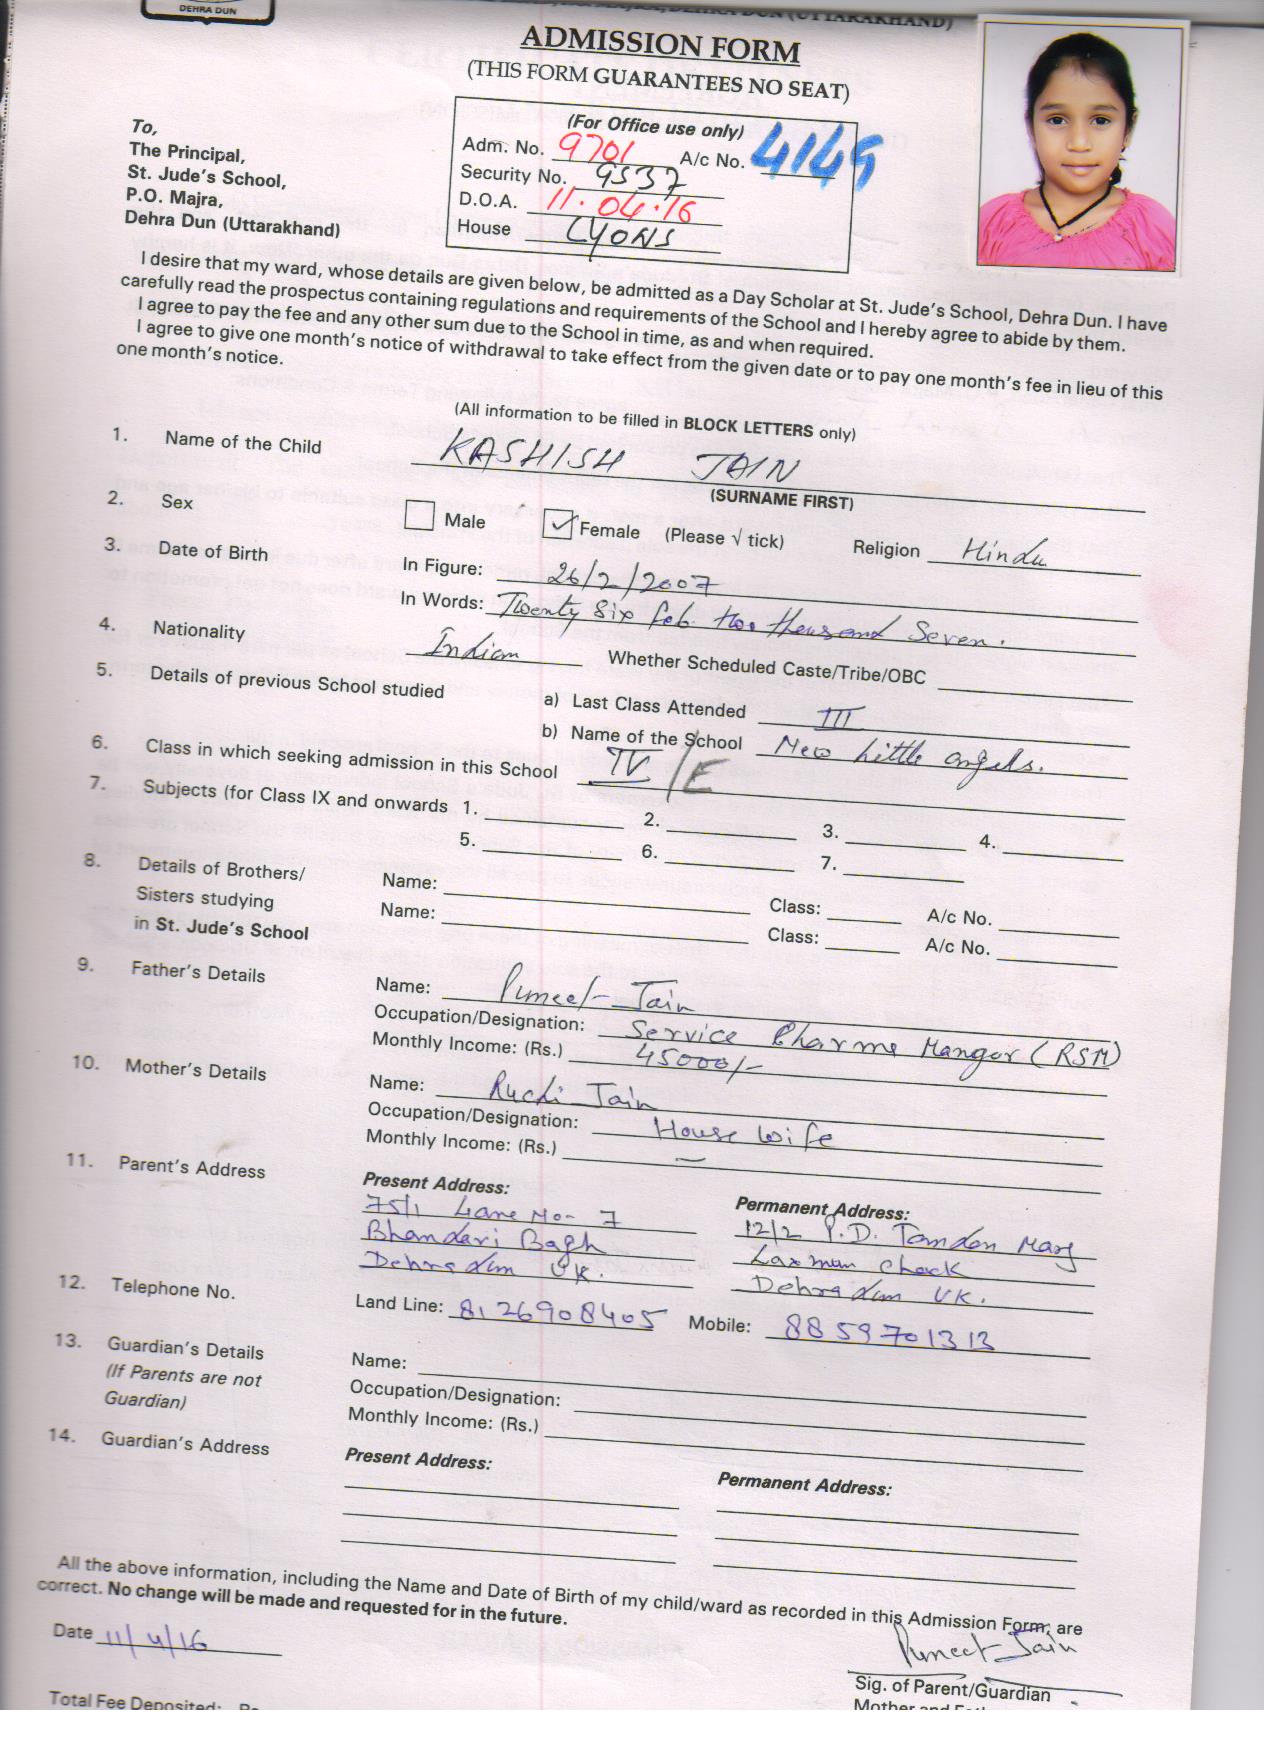 DEHRA DUN
DEHRA DUN (UTTARAKHAND)
ADMISSION FORM
(THIS FORM GUARANTEES NO SEAT)
(For Office use only)
Adm. No. 9701 A/c No. 4149
Security No. 9537
D.O.A. 11.04.16
House LYONS
To,
The Principal,
St. Jude's School,
P.O. Majra,
Dehra Dun (Uttarakhand)
I desire that my ward, whose details are given below, be admitted as a Day Scholar at St. Jude's School, Dehra Dun. I have
carefully read the prospectus containing regulations and requirements of the School and I hereby agree to abide by them.
I agree to pay the fee and any other sum due to the School in time, as and when required.
I agree to give one month's notice of withdrawal to take effect from the given date or to pay one month's fee in lieu of this
one month's notice.
(All information to be filled in BLOCK LETTERS only)
1. Name of the Child KASHISH JAIN
(SURNAME FIRST)
2. Sex Male Female (Please √ tick) Religion Hindu
3. Date of Birth In Figure: 26/2/2007
In Words: Twenty Six feb. two thousand Seven.
4. Nationality Indian Whether Scheduled Caste/Tribe/OBC
5. Details of previous School studied a) Last Class Attended III
b) Name of the School New Little angels.
6. Class in which seeking admission in this School IV/E
7. Subjects (for Class IX and onwards 1. 2. 3. 4.
5. 6. 7.
8. Details of Brothers/ Name: Class: A/c No.
Sisters studying Name: Class: A/c No.
in St. Jude's School
9. Father's Details Name: Puneet Jain
Occupation/Designation: Service Pharma Mangor (RSM)
Monthly Income: (Rs.) 45000/-
10. Mother's Details Name: Ruchi Jain
Occupation/Designation: House wife
Monthly Income: (Rs.) —
11. Parent's Address Present Address: Permanent Address:
75/1 Lane No- 7 12/2 P.D. Tandon Marg
Bhandari Bagh Laxman Chock
Dehradun UK. Dehradun UK.
12. Telephone No. Land Line: 8126908405 Mobile: 8859701313
13. Guardian's Details Name:
(If Parents are not Occupation/Designation:
Guardian) Monthly Income: (Rs.)
14. Guardian's Address Present Address: Permanent Address:
All the above information, including the Name and Date of Birth of my child/ward as recorded in this Admission Form, are
correct. No change will be made and requested for in the future.
Date 11/4/16 Puneet Jain
Sig. of Parent/Guardian
Total Fee Deposited: